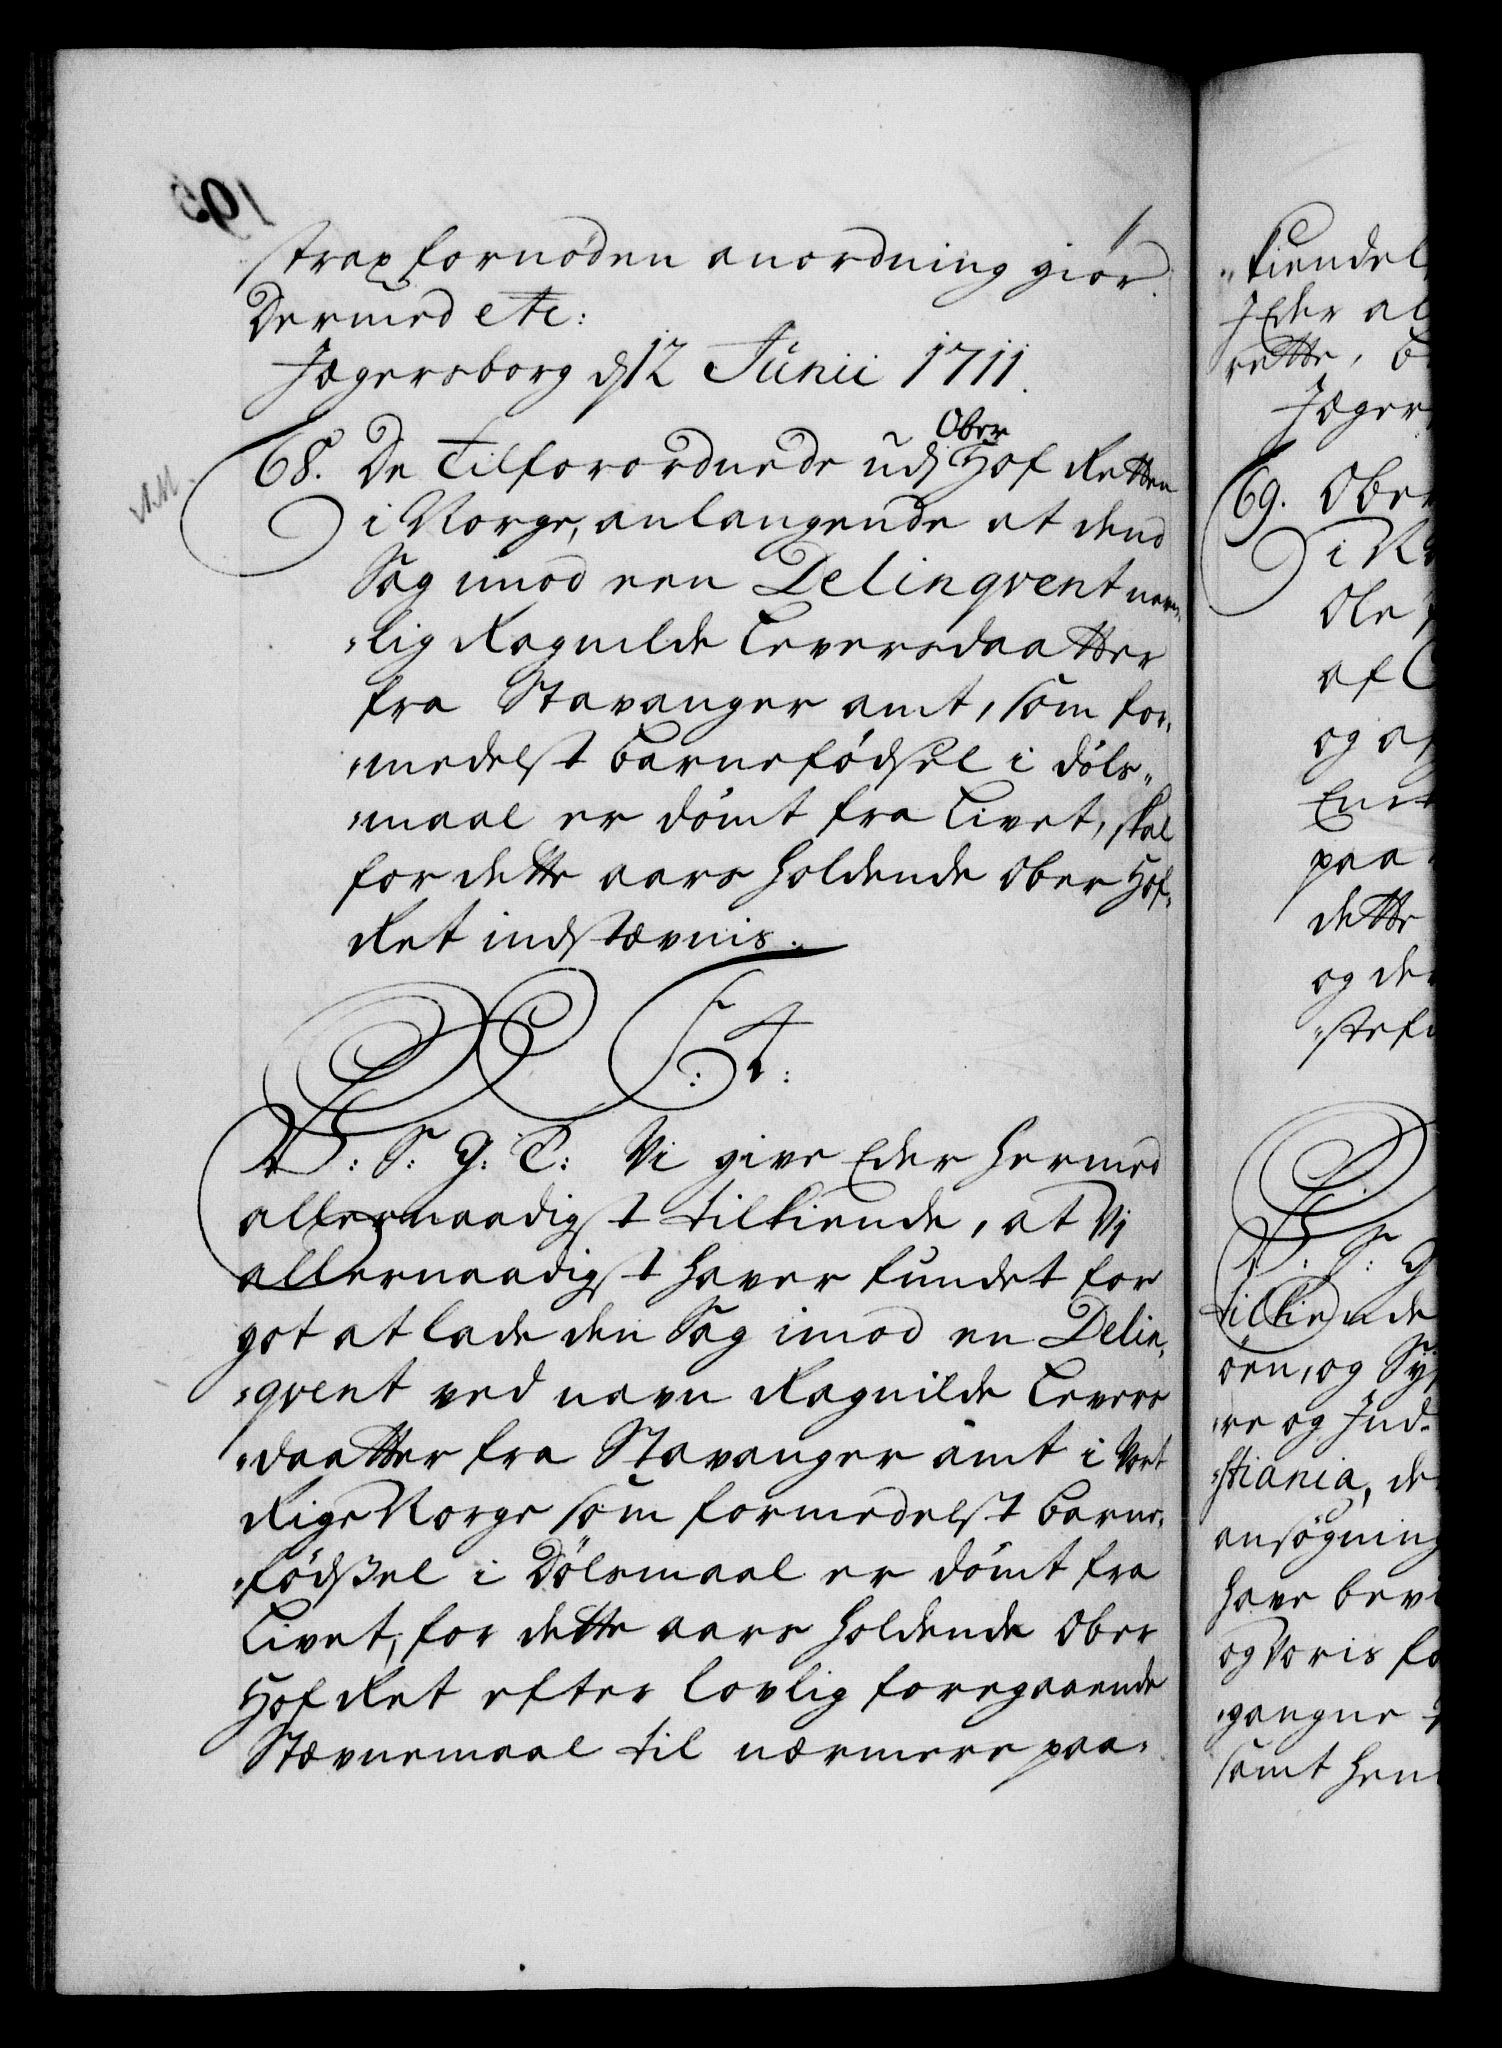 strax fornøden anordning giør.
Dermed etc:
Jægersborg d 12 Junii 1711.
68. De Tilforordnede udj Ober Hof Retten
i Norge, anlangende at dend
Sag imod een Delinqvent nem„
„lig Ragnilde Leversdaatter
fra Stavanger amt, som for„
„medelst barnefødsel i døls„
„maal er dømt fra Livet, skal
for dette aars holdende Ober Hof„
Ret indstævnis.
F: 4:
W: S: G: T: Vi give Eder hermed
allernaadigst tilkiende, at Vj
allernaadigst haver fundet for
got at lade den Sag imod en Delin„
„qvent ved navn Ragnilde Levers
„daatter fra Stavanger amt i Vort
Rige Norge som formedelst barne„
„fødsel i Dølsmaal er dømt fra
Livet, for dette aars holdende Ober
Hof Ret efter lovlig foregaaende
Stævnemaal til nærmere paa„
„kiendel
Eder al
rette,
Jæger
69. Ober
i No
Ole
af
og af
paa
dette
og de
„stefn
W: S: G
tilkiende
øen, og
„re og Jud„
„stiania, de
ansøgning
have bev
og Voris fo
„gangne
samt hen